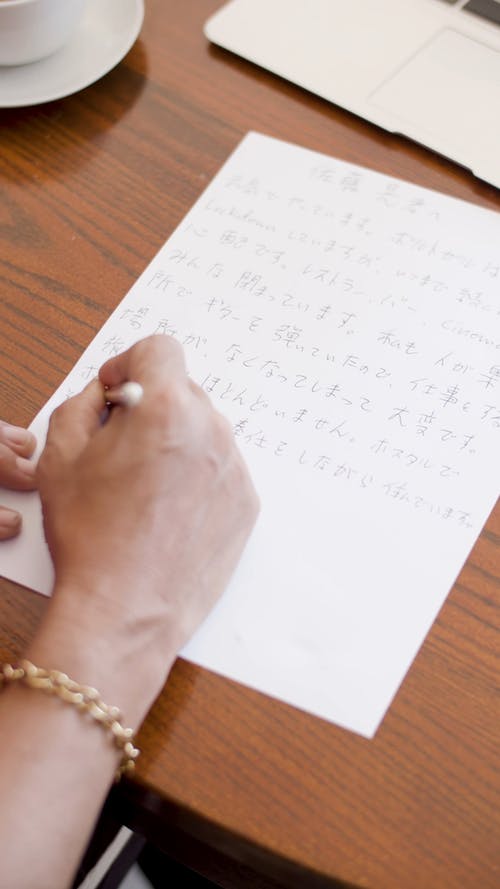 佐藤 晃君へ
元気でやっています。ポルトガルは
Lockdownしていますが、いつまで続
に配です。レストラン、バー、cinema
みんな閉まっています。私も人が集
所でギターを弾いていたので、仕事をす
場所が、なくなってしまって大変です。
ほとんどいません。ホスタルで
奉仕をしながら住んでいます。